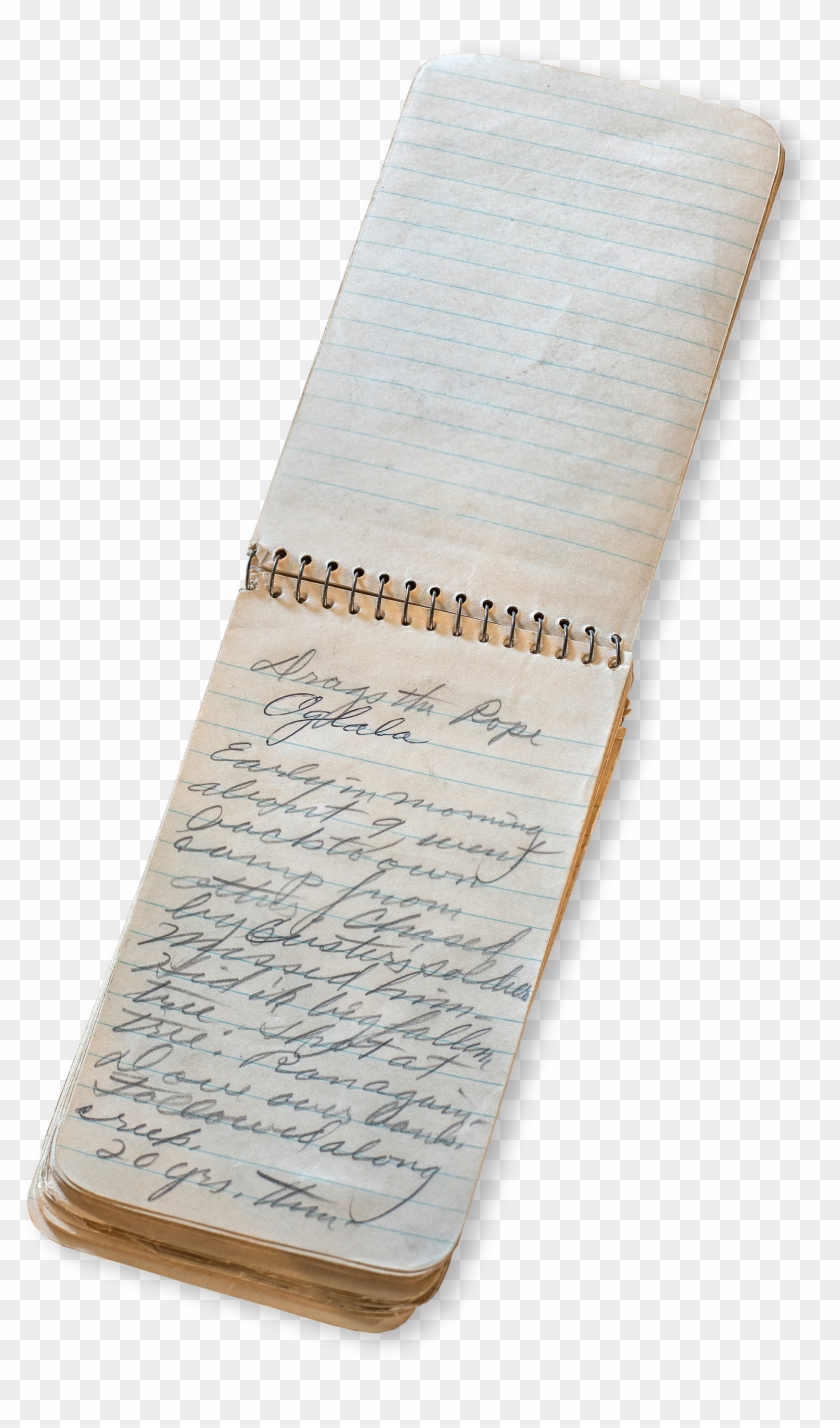 Drags the Rope
Oglala
Early in morning
about 9 went
back to own
camp from
other, chased
by Custers soldiers
Missed him
Hid in big fallen
tree. Shot at
tree. Ran again
down over bank.
Followed along
creek.
20 yrs. then.